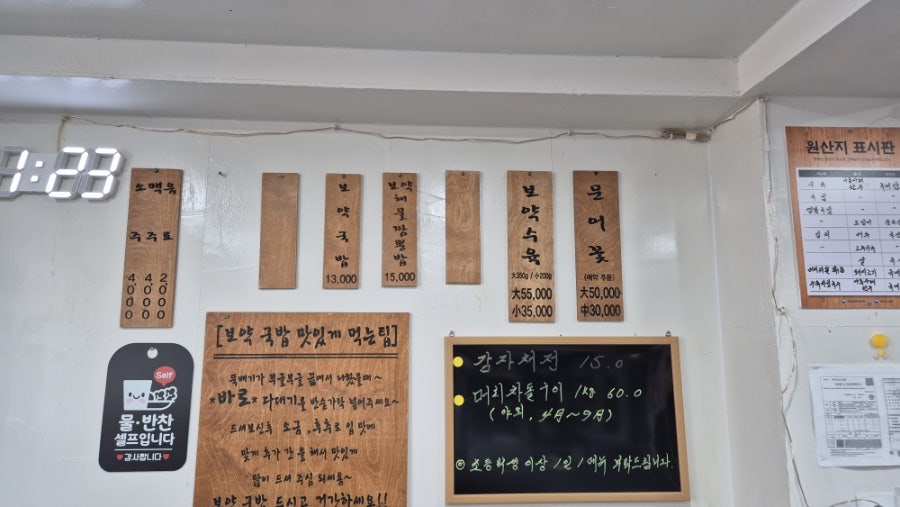 1:23
소맥음
주주료
4,000
4,000
2,000
보약국밥
13,000
보약해물짬뽕밥
15,000
보약수육
大350g / 小200g
大55,000
小35,000
문어꽃
(예약 주문)
大50,000
中30,000
[보약 국밥 맛있게 먹는팁]
뚝배기가 부글부글 끓여서 나왔을때~
*바로* 다대기를 반숟가락 넣어주세요~
드셔보신후 소금, 후추로 입맛에
맞게 추가 간을 해서 맛있게
많이 드셔 주심 되세용~
보약 국밥 드시고 건강하세요!!
감자채전 15.0
머리차돌구이 1kg 60.0
(야외, 4月~9月)
◎ 초등학생 이상 1인 1메뉴 부탁드립니다.
Self
물·반찬
셀프입니다
감사합니다
원산지 표시판
수육
국밥
김치
쌀